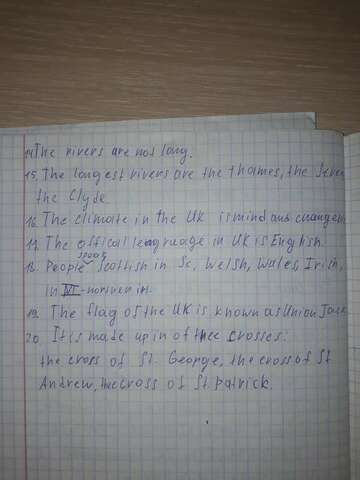 14 The rivers are not long.
15. The longest rivers are the thames, the Severn
the Clyde
16. The climate in the UK is mind and changem
17. The offical lengreage in UK is English.
speak
18. People Scottish in Sc, Welsh, Wales, Irish,
in NI-norven in.
19. The flag of the UK is known as Union Jack
20. It is made up in of thee crosses:
the cross of St. George, the cross of St
Andrew, the cross of St Patrick.